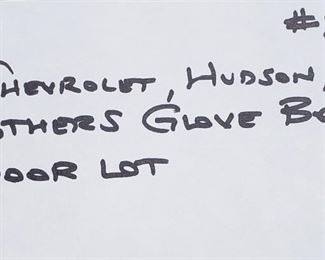 #
CHEVROLET, HUDSON,
OTHERS GLOVE BO
DOOR LOT